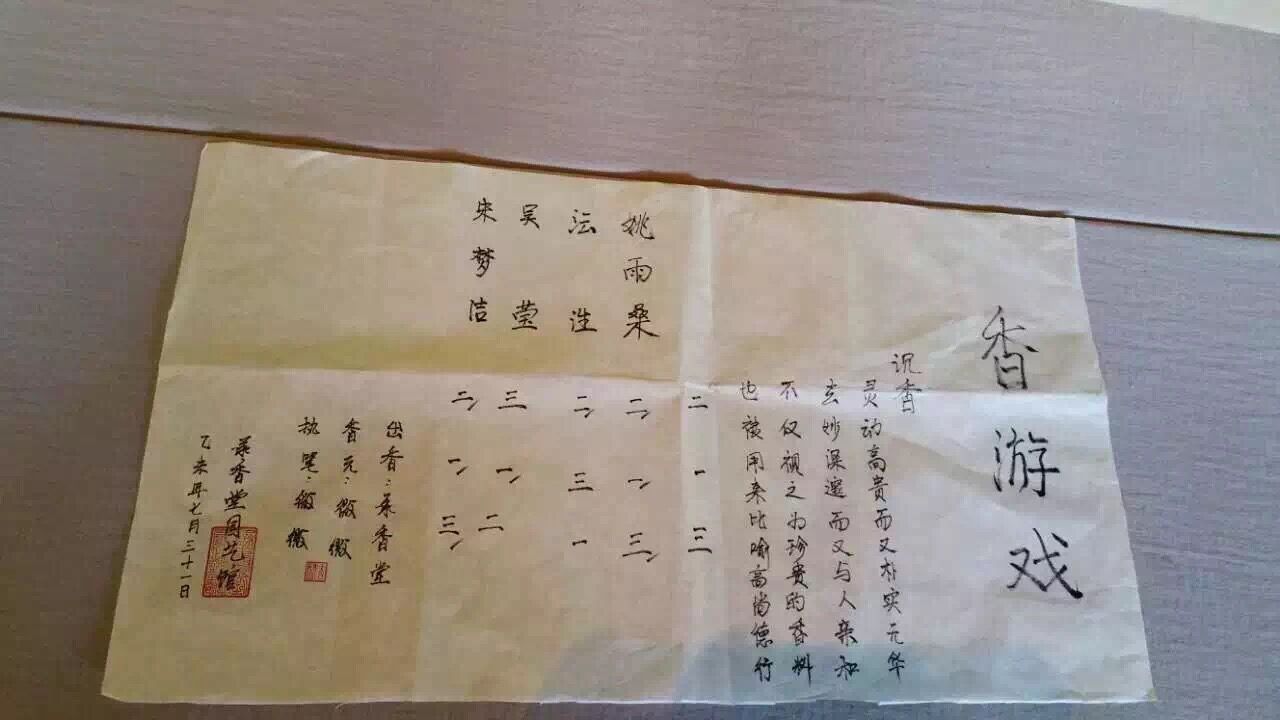 香游戏
沉香
灵动高贵而又朴实元华
玄妙深邃而又与人亲和
不仅视之为珍贵的香料
也被用来比喻高尚德行
二一三
姚雨桑
二、一、三、
沄泩
二、三一
吴莹
三一、二
宋梦洁
二、一、三、
出香：香堂
香元：微微
执笔：微微
香堂国艺馆
乙未年七月三十一日